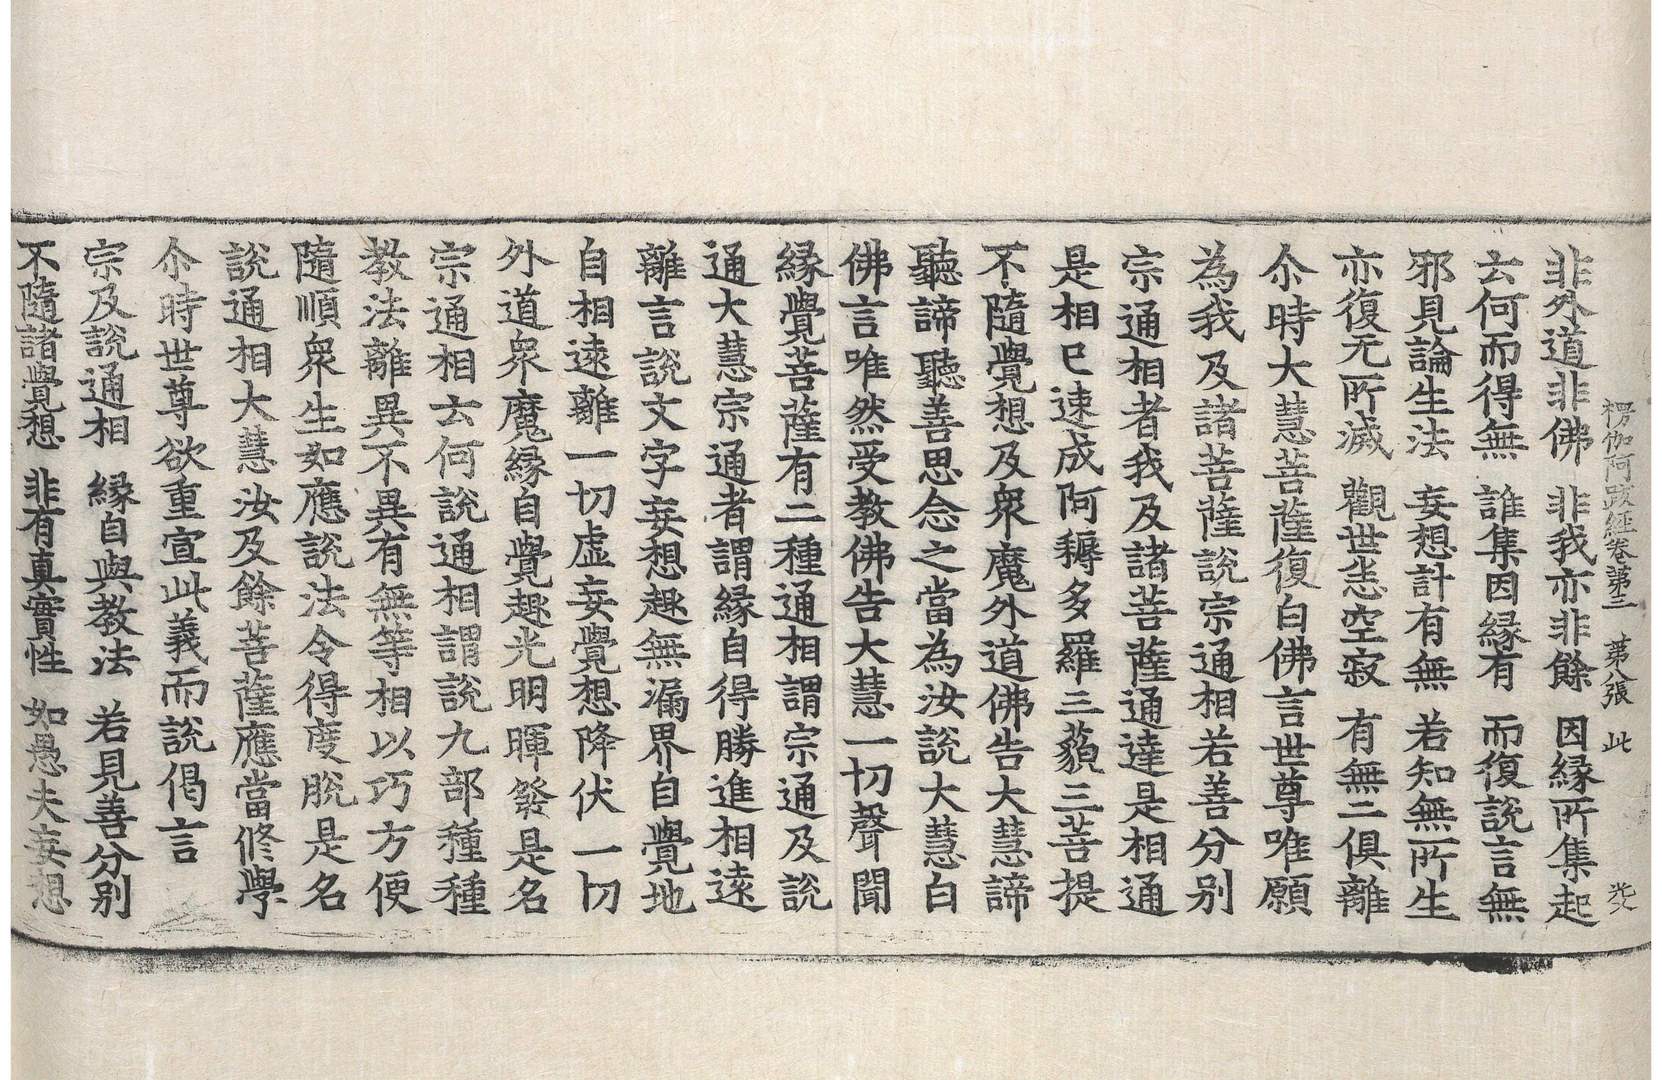 楞伽阿跋經卷第三 第八張 此
非外道非佛 非我亦非餘 因緣所集起
云何而得無 誰集因緣有 而復說言無
邪見論生法 妄想計有無 若知無所生
亦復无所滅 觀世悉空寂 有無二俱離
尒時大慧菩薩復白佛言世尊唯願
為我及諸菩薩說宗通相若善分別
宗通相者我及諸菩薩通達是相通
是相已速成阿耨多羅三藐三菩提
不隨覺想及衆魔外道佛告大慧諦
聽諦聽善思念之當為汝說大慧白
佛言唯然受教佛告大慧一切聲聞
緣覺菩薩有二種通相謂宗通及說
通大慧宗通者謂緣自得勝進相遠
離言說文字妄想趣無漏界自覺地
自相遠離一切虛妄覺想降伏一切
外道衆魔緣自覺趣光明暉發是名
宗通相云何說通相謂說九部種種
教法離異不異有無等相以巧方便
隨順衆生如應說法令得度脫是名
說通相大慧汝及餘菩薩應當修學
尒時世尊欲重宣此義而說偈言
宗及說通相 緣自與教法 若見善分別
不隨諸覺想 非有真實性 如愚夫妄想